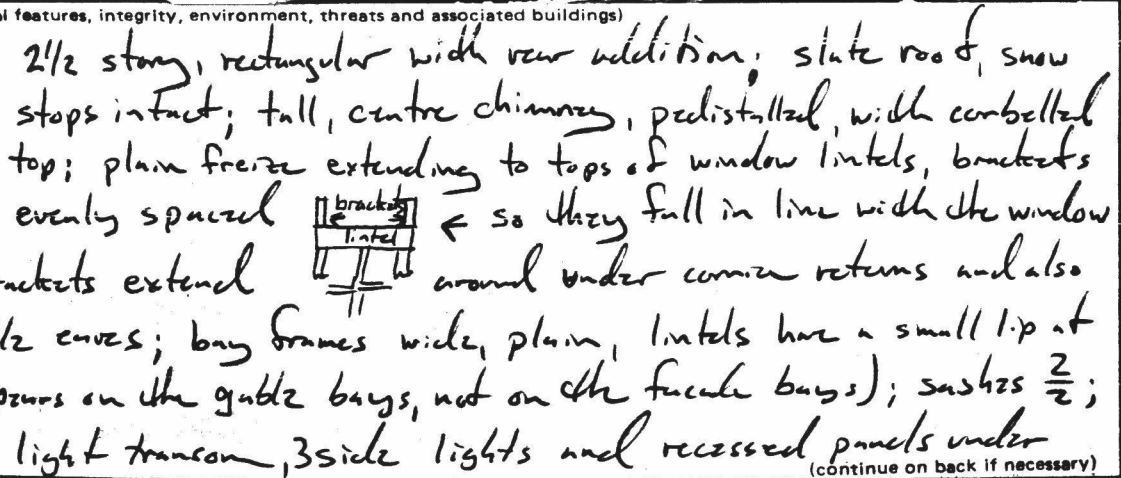 al features, integrity, environment, threats and associated buildings)
2 1/2 story, rectangular with rear addition; slate roof, snow
stops intact; tall, centre chimney, pedistalled, with corbelled
top; plain freize extending to tops of window lintels, brackets
evenly spaced bracket lintel ← so they fall in line with the window
rackets extend around under cornice returns and also
le eaves; bay frames wide, plain, lintels have a small lip at
pears on the gable bays, not on the facade bays); sashes 2/2;
light transom, 3 side lights and recessed panels under
(continue on back if necessary)